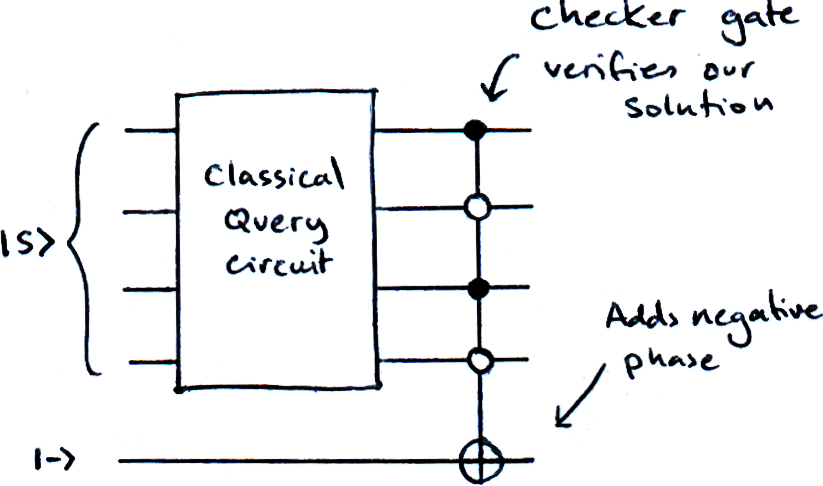 Checker gate
verifies our
solution
Classical
Query
circuit
|S>
Adds negative
phase
|->